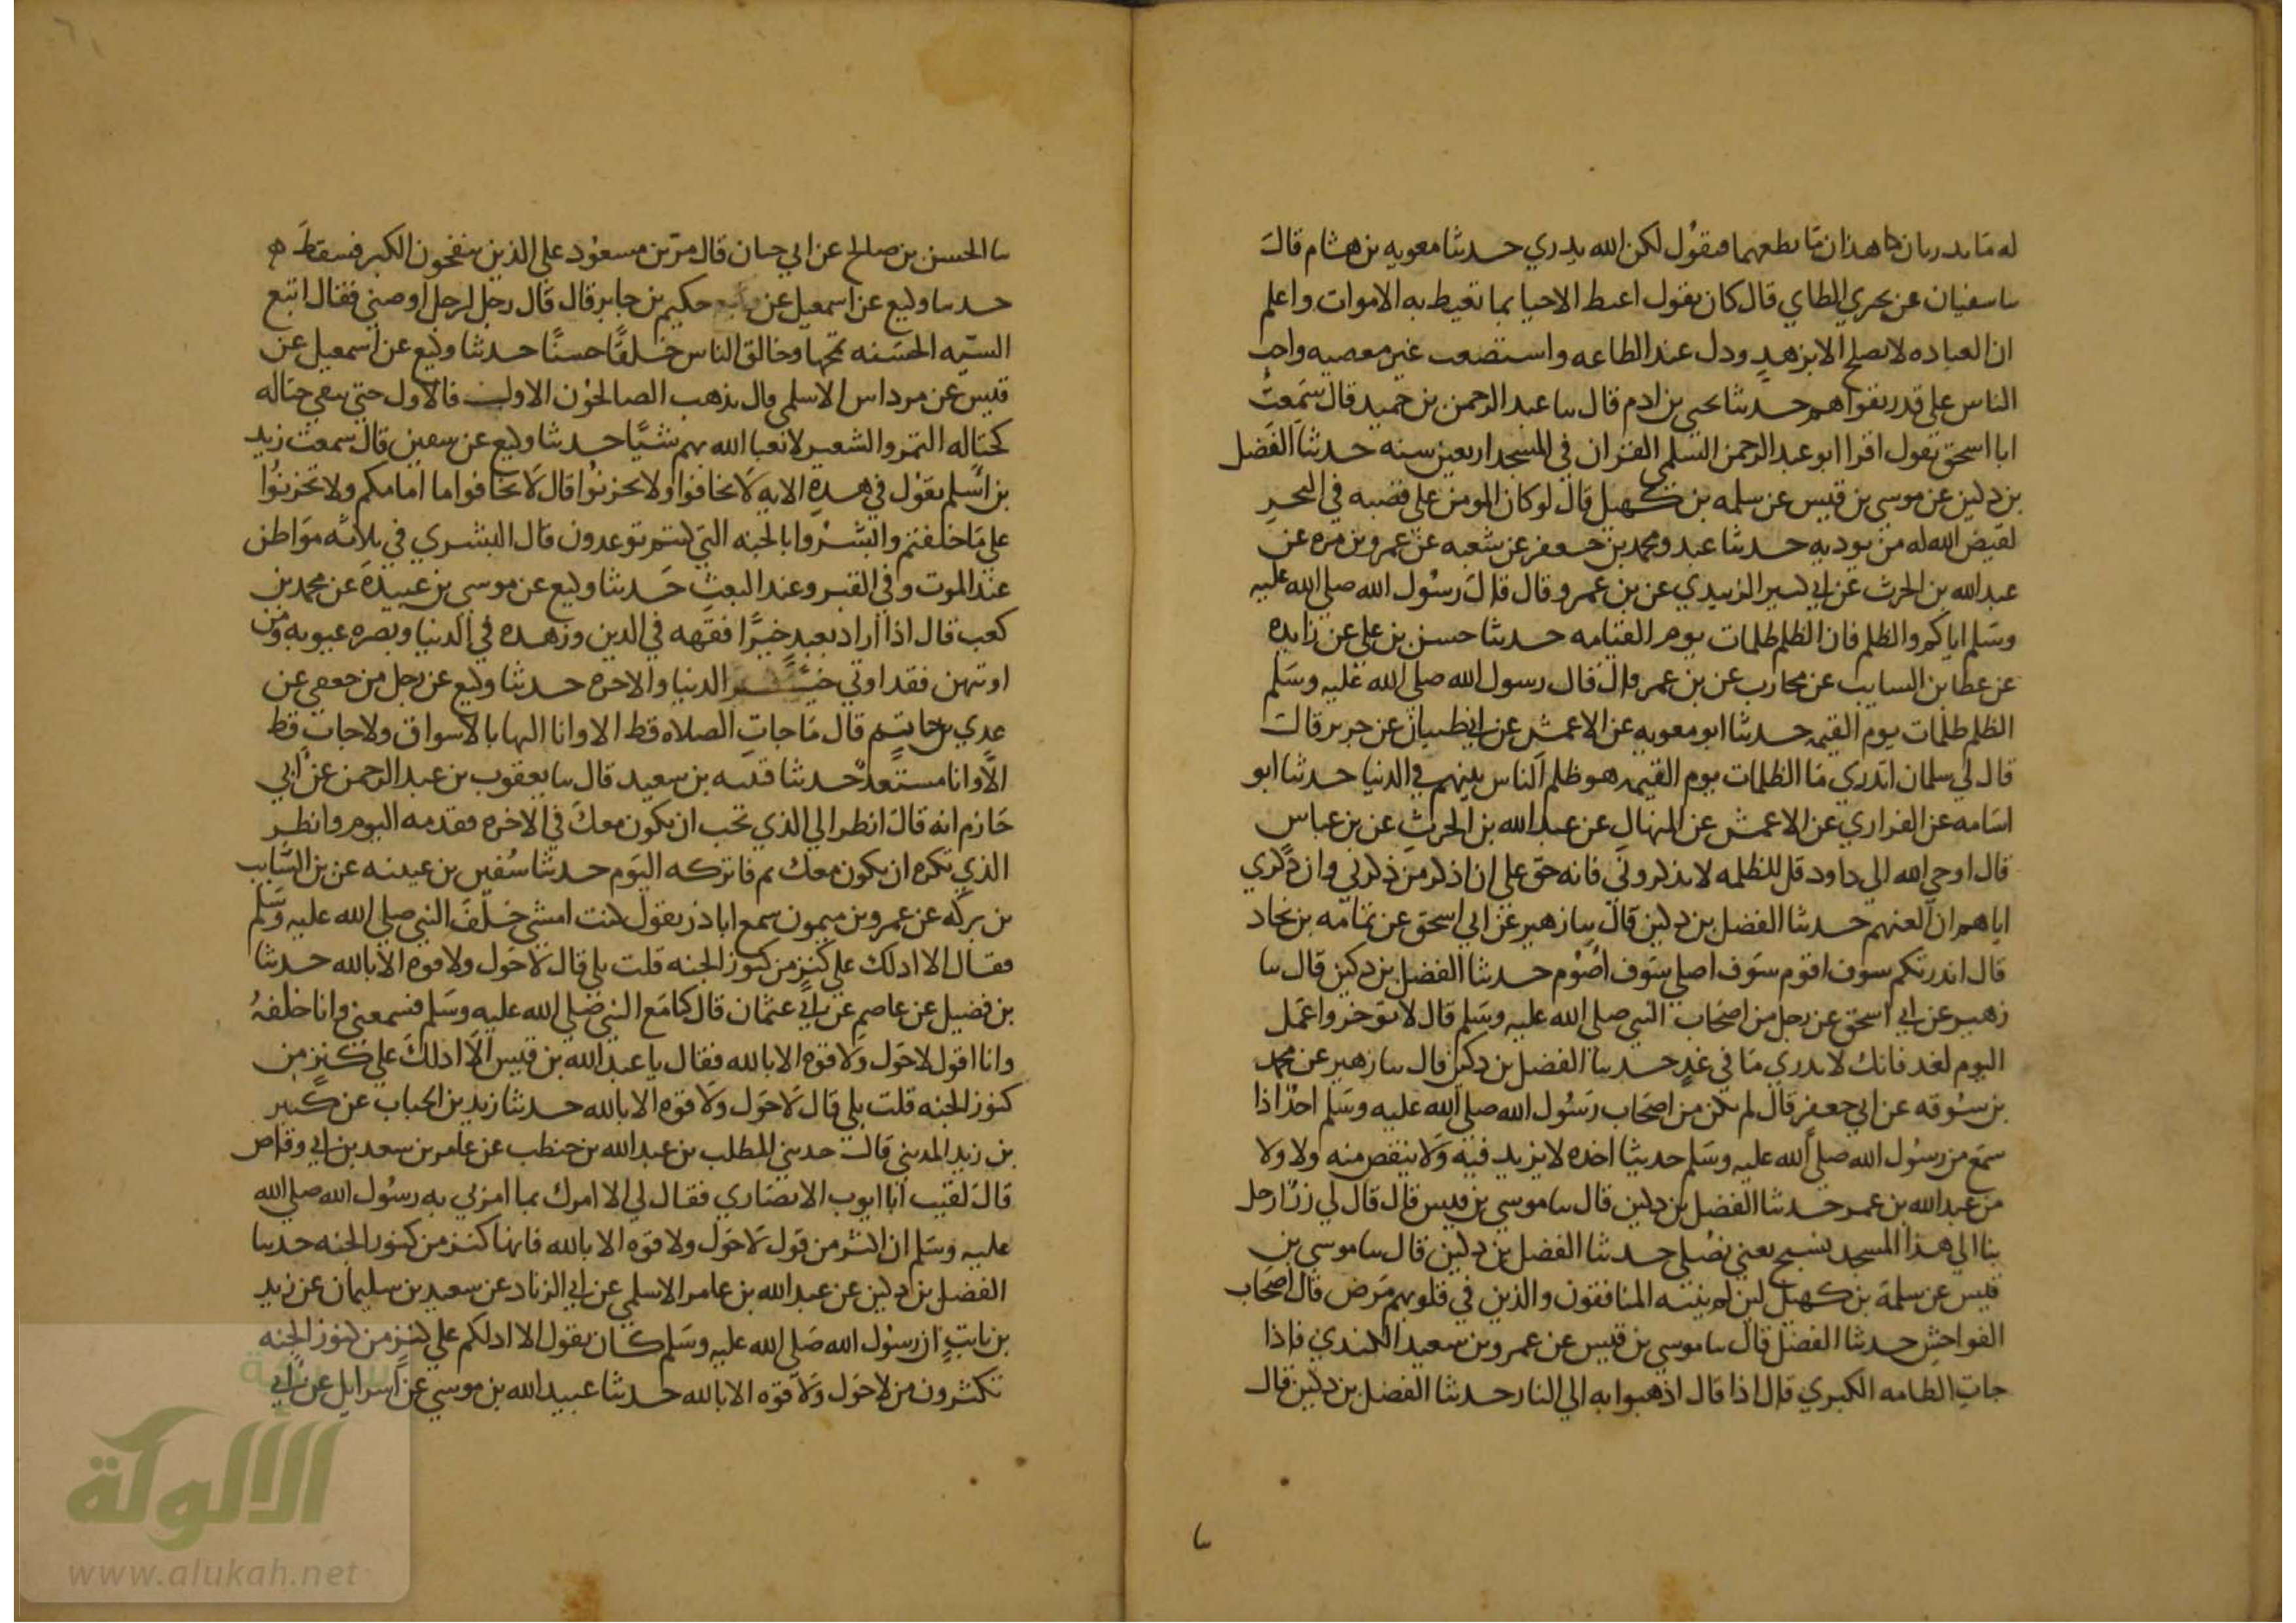 له ما يدريان ما هذان ما نطعهما فيقول لكن الله يدري حدثنا معويه بن هشام قال
سا سفيان عن بحري الطاي قال كان يقول اغبط الاحيا بما تغبط به الاموات واعلم
ان العباده لا تصلح الا بزهد ودل عند الطاعه واستصعب عند معصيه واحب
الناس على قدر تقواهم حدثنا يحيى بن ادم قال سا عبد الرحمن بن حميد قال سمعت
ابا اسحق يقول اقرا ابو عبد الرحمن السلمي القران في المسجد اربعين سنه حدثنا الفضل
بن دكين عن موسى بن قيس عن سلمه بن كهيل قال لو كان المومن على قصبه في البحر
لقيض الله له من يوديه حدثنا عبده ومحمد بن جعفر عن شعبه عن عمرو بن مره عن
عبد الله بن الحرث عن ابي كسير الزبيدي عن بن عمرو قال قال رسول الله صلى الله عليه
وسلم اياكم والظلم فان الظلم ظلمات يوم القيامه حدثنا حسن بن علي عن زايده
عن عطا بن السايب عن محارب عن بن عمر قال قال رسول الله صلى الله عليه وسلم
الظلم ظلمات يوم القيمه حدثنا ابو معويه عن الاعمش عن ابي ظبيان عن جرير قال
قال لي سلمان اتدري ما الظلمات يوم القيمه هو ظلم الناس بينهم في الدنيا حدثنا ابو
اسامه عن الفزاري عن الاعمش عن المنهال عن عبد الله بن الحرث عن بن عباس
قال اوحى الله الى داود قل للظلمه لا يذكروني فانه حق علي ان اذكر من ذكرني وان ذكري
اياهم ان العنهم حدثنا الفضل بن دكين قال سا زهير عن ابي اسحق عن ثمامه بن بجاد
قال انذرتكم سوف اقوم سوف اصلي سوف اصوم حدثنا الفضل بن دكين قال سا
زهير عن ابي اسحق عن رجل من اصحاب النبي صلى الله عليه وسلم قال لا توخر واعمل
اليوم لغد فانك لا تدري ما في غد حدثنا الفضل بن دكين قال سا زهير عن محمد
بن سوقه عن ابي جعفر قال لم يكن من اصحاب رسول الله صلى الله عليه وسلم احد اذا
سمع من رسول الله صلى الله عليه وسلم حديثا اخذه لا يزيد فيه ولا ينقص منه ولا ولا
من عبد الله بن عمر حدثنا الفضل بن دكين قال سا موسى بن قيس قال قال لي زر ارحل
بنا الى هذا المسجد نسبح يعني نصلي حدثنا الفضل بن دكين قال سا موسى بن
قيس عن سلمة بن كهيل لين لم ينته المنافقون والذين في قلوبهم مرض قال اصحاب
الفواحش حدثنا الفضل قال سا موسى بن قيس عن عمرو بن سعيد الكندي فاذا
جات الطامه الكبري قال اذا قال اذهبوا به الى النار حدثنا الفضل بن دكين قال
سا
سا الحسن بن صالح عن ابي حيان قال مر بن مسعود على الذين ينفخون الكير فسقط ه
حدثنا وكيع عن اسمعيل عن حكيم بن جابر قال قال رجل لرجل اوصني فقال اتبع
السيه الحسنه تمحها وخالق الناس خلقا حسنا حدثنا وكيع عن اسمعيل عن
قيس عن مرداس الاسلمي قال يذهب الصالحون الاول فالاول حتى يبقى حثاله
كحثاله التمر والشعير لا يعبا الله بهم شيا حدثنا وكيع عن سفين قال سمعت زيد
بن اسلم يقول في هذه الايه لا تخافوا ولا تحزنوا قال لا تخافوا ما امامكم ولا تحزنوا
على ما خلفتم وابشروا بالجنه التي كنتم توعدون قال البشري في ثلاثه مواطن
عند الموت وفي القبر وعند البعث حدثنا وكيع عن موسى بن عبيدة عن محمد بن
كعب قال اذا اراد بعبد خيرا فقهه في الدين وزهده في الدنيا وبصره عيوبه ومن
اوتيهن فقد اوتي خير الدنيا والاخره حدثنا وكيع عن رجل من جعفي عن
عدي بن حاتم قال ما جات الصلاه قط الا وانا اليها بالاسواق ولا جات قط
الا وانا مستعد حدثنا قتيبه بن سعيد قال سا يعقوب بن عبد الرحمن عن ابي
حازم انه قال انظر الى الذي تحب ان يكون معك في الاخره فقدمه اليوم وانظر
الذي تكره ان يكون معك ثم فاتركه اليوم حدثنا سفين بن عيينه عن بن السايب
بن بركه عن عمرو بن ميمون سمع ابا ذر يقول كنت امشي خلف النبي صلى الله عليه وسلم
فقال الا ادلك على كنز من كنوز الجنه قلت بلي قال لا حول ولا قوه الا بالله حدثنا
بن فضيل عن عاصم عن ابي عثمان قال كنا مع النبي صلى الله عليه وسلم فسمعني وانا خلفه
وانا اقول لا حول ولا قوه الا بالله فقال يا عبد الله بن قيس الا ادلك على كنز من
كنوز الجنه قلت بلي قال لا حول ولا قوه الا بالله حدثنا زيد بن الحباب عن كثير
بن زيد المدني قال حدثني المطلب بن عبد الله بن حنطب عن عامر بن سعد بن ابي وقاص
قال لقيت ابا ايوب الانصاري فقال لي الا امرك بما امرني به رسول الله صلى الله
عليه وسلم ان اكثر من قول لا حول ولا قوه الا بالله فانها كنز من كنوز الجنه حدثنا
الفضل بن دكين عن عبد الله بن عامر الاسلمي عن ابي الزناد عن سعيد بن سليمان عن زيد
بن ثابت ان رسول الله صلى الله عليه وسلم كان يقول الا ادلكم على كنز من كنوز الجنه
تكثرون من لا حول ولا قوه الا بالله حدثنا عبيد الله بن موسى عن اسرايل عن ابي
الألوكة
www.alukah.net